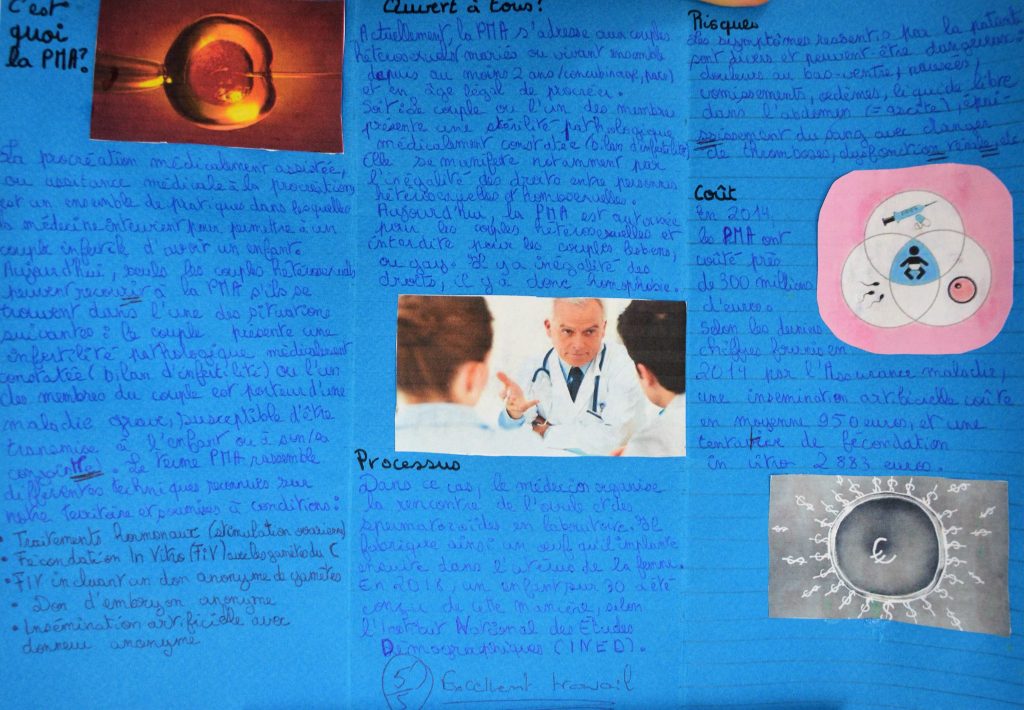 C'est
quoi
la PMA?
La procréation médicalement assistée,
ou assistance médicale à la procréation
est un ensemble de pratiques dans lesquelles
la médecine intervient pour permettre à un
couple infertile d'avoir un enfant.
Aujourd'hui, seuls les couples hétérosexuels
peuvent recourir à la PMA s'ils se
trouvent dans l'une des situations
suivantes : le couple présente une
infertilité pathologique médicalement
constatée (bilan d'infertilité) ou l'un
des membres du couple est porteur d'une
maladie grave, susceptible d'être
transmise à l'enfant ou à son/sa
conjointe. Le terme PMA rassemble
différentes techniques reconnues sur
notre territoire et soumises à conditions :
• Traitements hormonaux (stimulation ovarienne)
• Fécondation In Vitro (FIV) avec les gamètes du C
• FIV incluant un don anonyme de gamètes
• Don d'embryon anonyme
• Insémination artificielle avec
donneur anonyme
Ouvert à tous?
Actuellement la PMA s'adresse aux couples
hétérosexuels mariés ou vivant ensemble
depuis au moins 2 ans (concubinage, pacs)
et en âge légal de procréer.
Soit le couple ou l'un des membres
présente une stérilité pathologique
médicalement constatée (bilan d'infertilité)
Elle se manifeste notamment par
l'inégalité des droits entre personnes
hétérosexuelles et homosexuelles.
Aujourd'hui, la PMA est autorisée
pour les couples hétérosexuels et
interdite pour les couples lesbiens,
ou gay. Il y a inégalité des
droits, il y a donc homophobie.
Processus
Dans ce cas, le médecin organise
la rencontre de l'ovule et des
spermatozoïdes en laboratoire. Il
fabrique ainsi un œuf qu'il implante
ensuite dans l'utérus de la femme.
En 2018, un enfant sur 30 a été
conçu de cette manière, selon
l'Institut National des Études
Démographiques (INED).
5/5 Excellent travail
Risques
Les symptômes ressentis par la patiente
sont divers et peuvent être dangereux :
douleurs au bas-ventre, nausées,
vomissements, œdèmes, liquide libre
dans l'abdomen (= ascite), épais-
sissement du sang avec danger
de thromboses, dysfonction rénale, etc
Coût
En 2014
les PMA ont
coûté près
de 300 millions
d'euros.
Selon les derniers
chiffres fournis en
2014 par l'Assurance maladie,
une insémination artificielle coûte
en moyenne 950 euros, et une
tentative de fécondation
in vitro 2 883 euros.